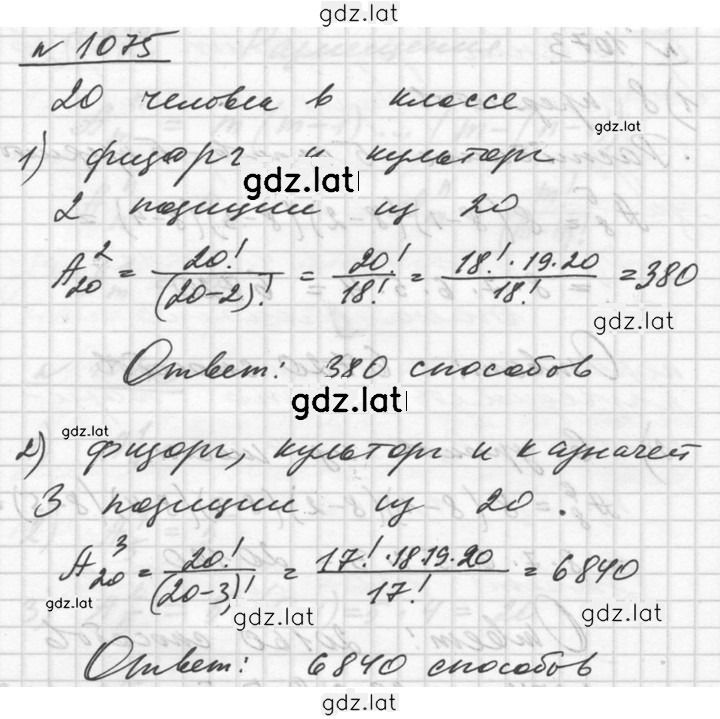 gdz.lat
№ 1075
20 человек в классе
gdz.lat
1) физорг и культорг
gdz.lat
2 позиции из 20
A₂₀² = 20!/(20-2)! = 20!/18! = 18!·19·20/18! = 380
gdz.lat
Ответ: 380 способов
gdz.lat
gdz.lat
2) физорг, культорг и казначей
3 позиции из 20.
A₂₀³ = 20!/(20-3)! = 17!·18·19·20/17! = 6840
gdz.lat
gdz.lat
Ответ: 6840 способов
gdz.lat